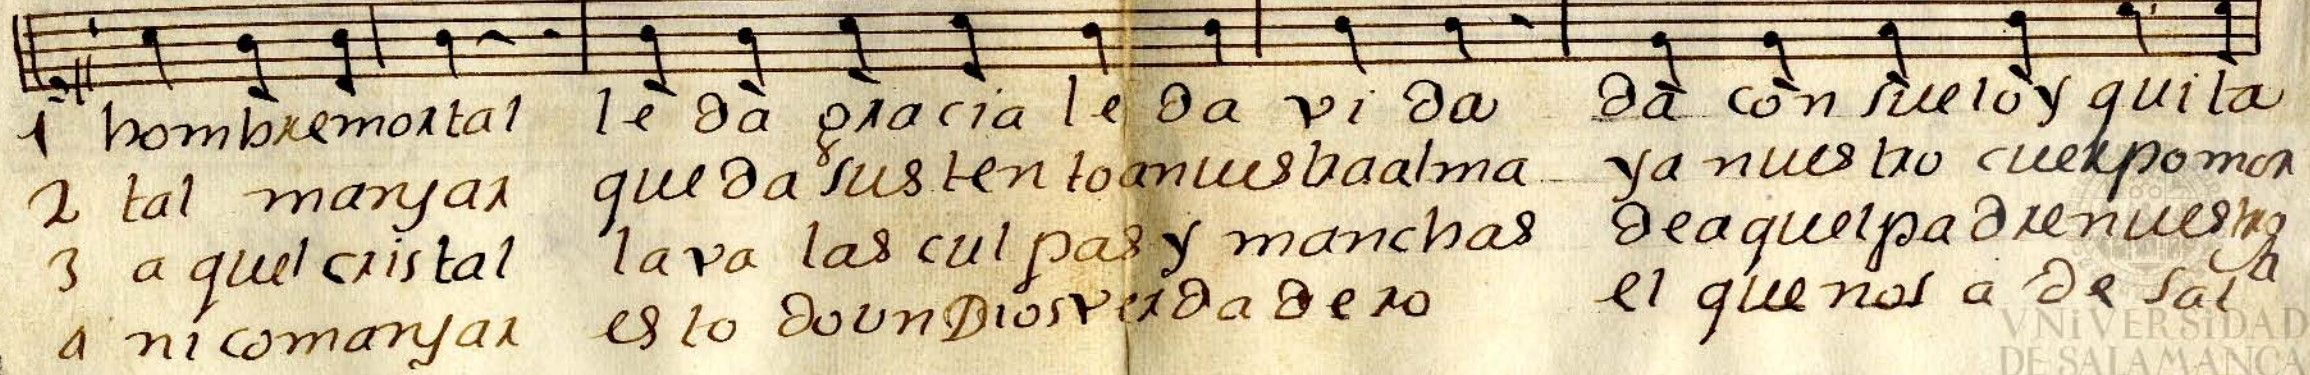 1 hombre mortal le da gracia le da vida da consuelo y quita
2 tal manjar que da sustento a nuestra alma y a nuestro cuerpo mor
3 aquel cristal lava las culpas y manchas de aquel padre nuestro
4 nico manjar es todo un Dios verdadero el que nos a de sal
VNIVERSIDAD
DE SALAMANCA